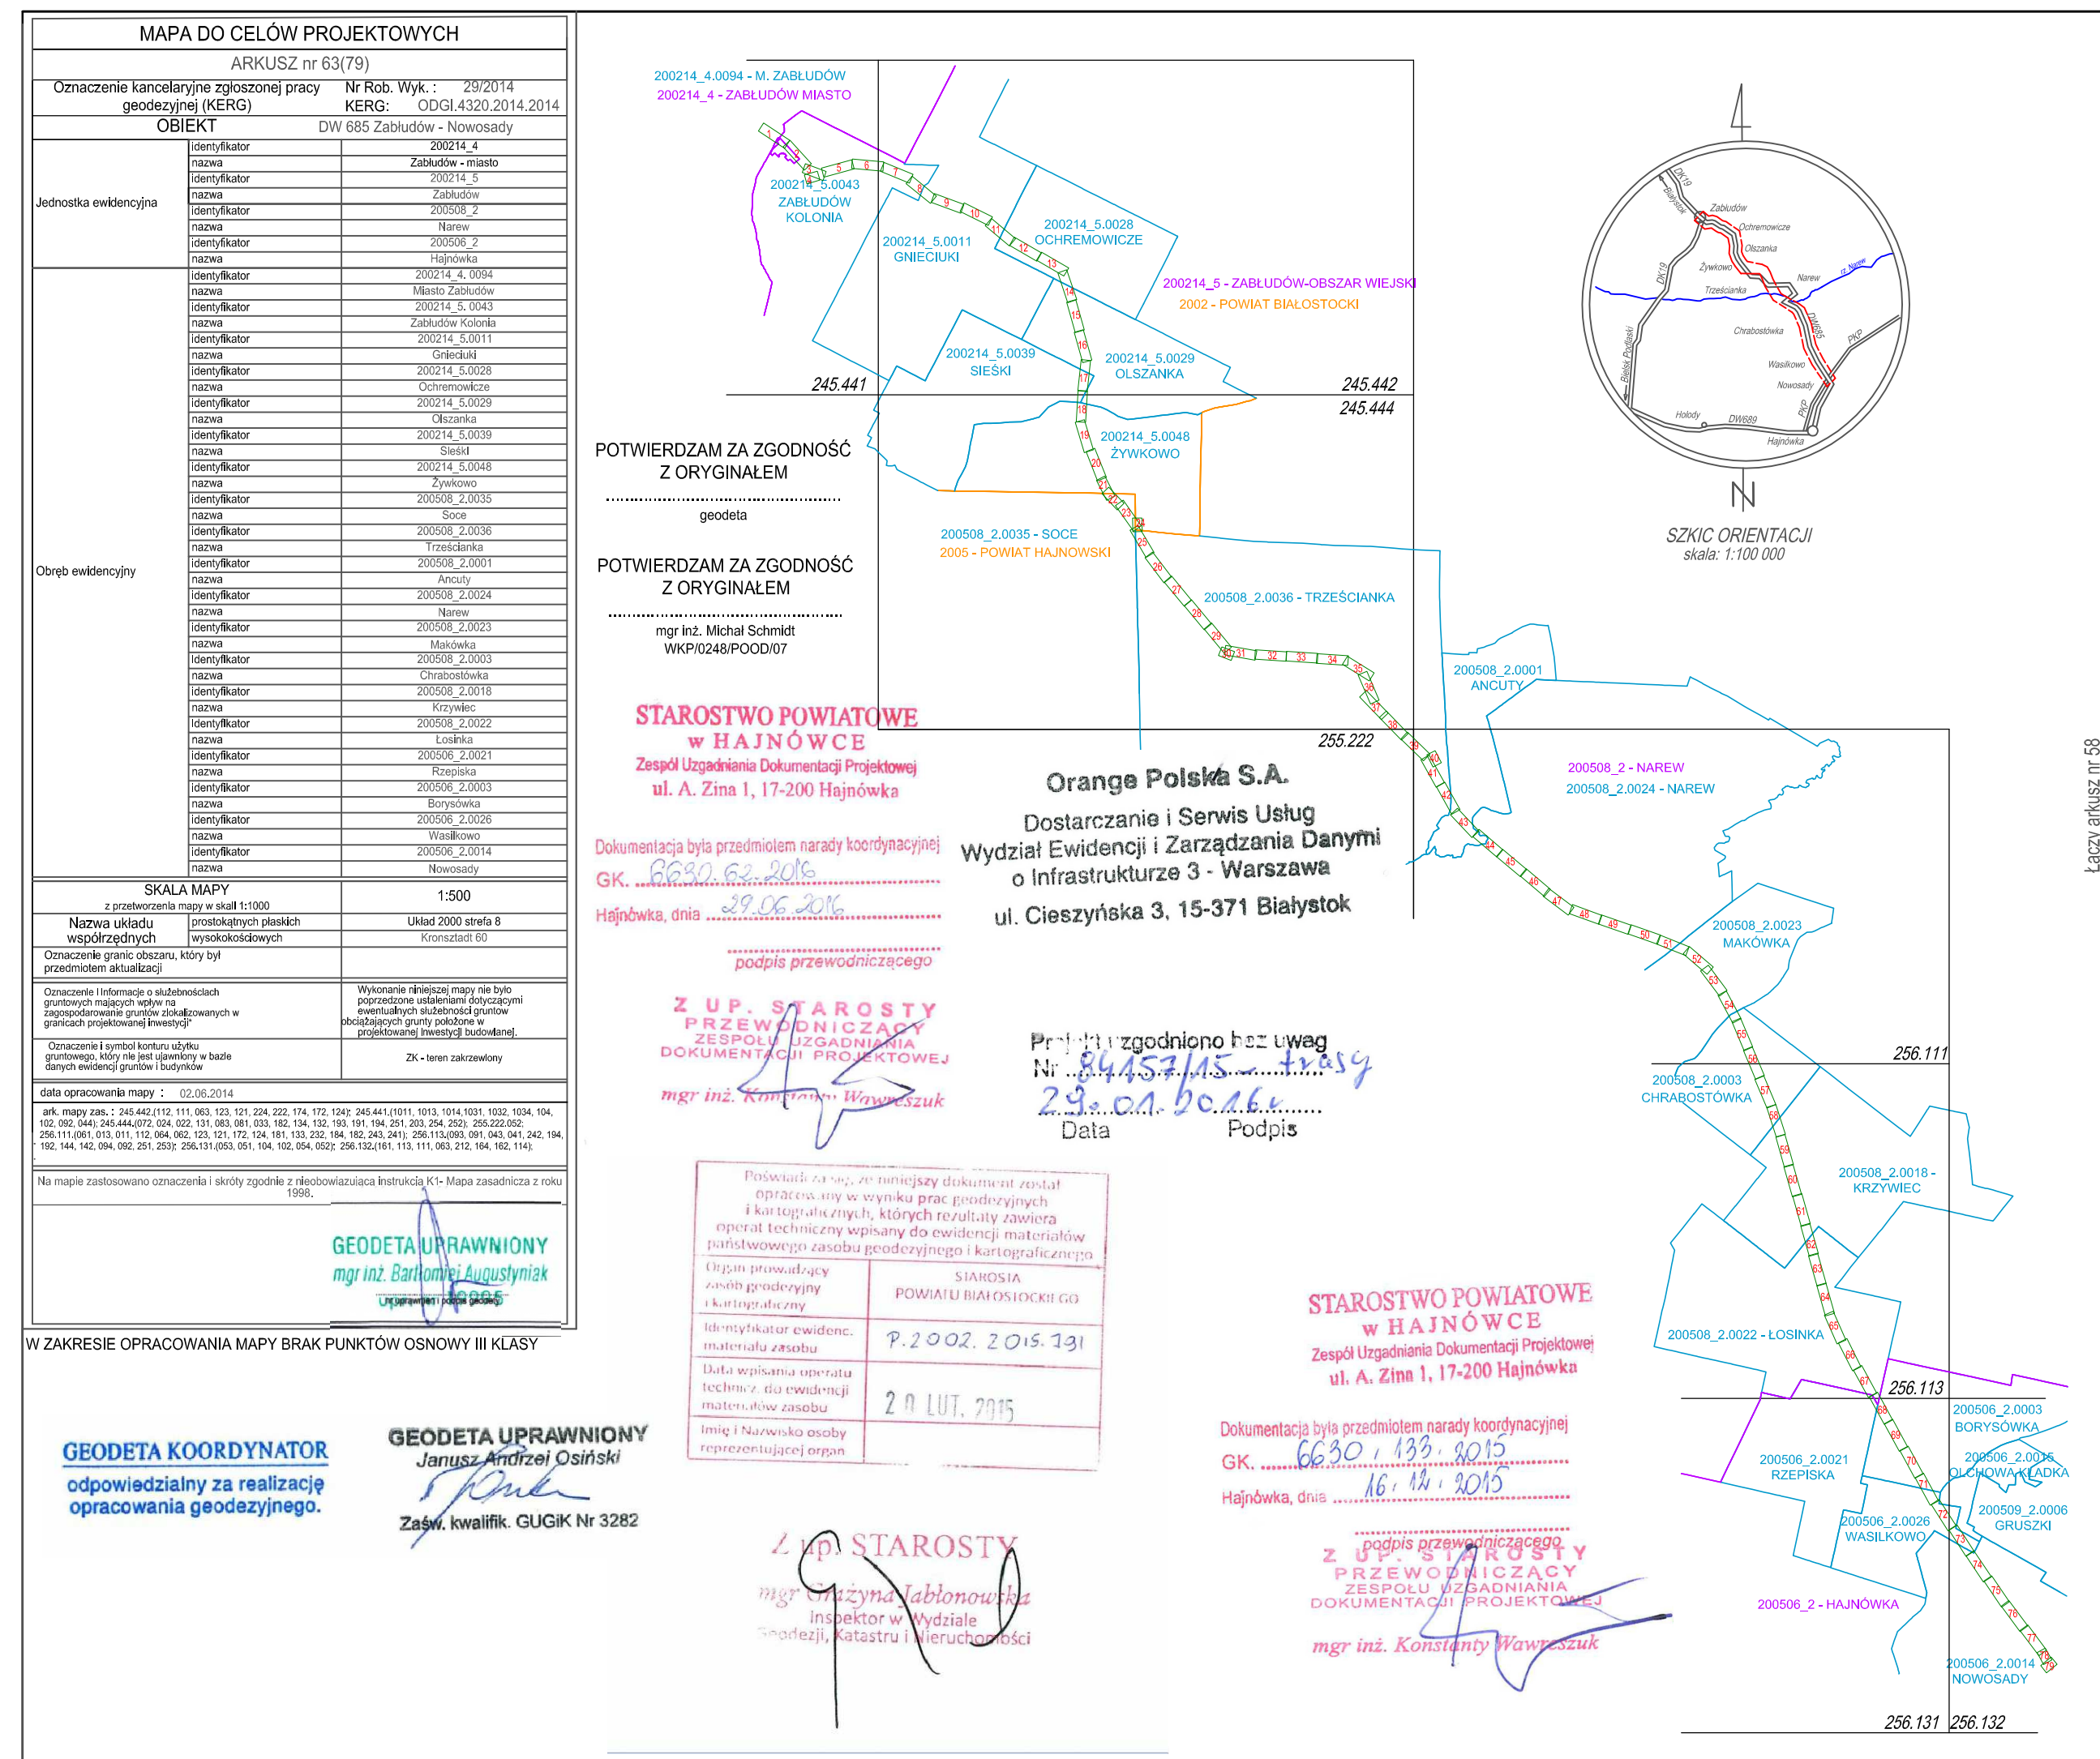 MAPA DO CELÓW PROJEKTOWYCH
ARKUSZ nr 63(79)
Oznaczenie kancelaryjne zgłoszonej pracy geodezyjnej (KERG)
Nr Rob. Wyk. : 29/2014
KERG: ODGI.4320.2014.2014
OBIEKT DW 685 Zabłudów - Nowosady
Jednostka ewidencyjna
identyfikator 200214_4
nazwa Zabłudów - miasto
identyfikator 200214_5
nazwa Zabłudów
identyfikator 200508_2
nazwa Narew
identyfikator 200506_2
nazwa Hajnówka
Obręb ewidencyjny
identyfikator 200214_4. 0094
nazwa Miasto Zabłudów
identyfikator 200214_5. 0043
nazwa Zabłudów Kolonia
identyfikator 200214_5.0011
nazwa Gnieciuki
identyfikator 200214_5.0028
nazwa Ochremowicze
identyfikator 200214_5.0029
nazwa Olszanka
identyfikator 200214_5.0039
nazwa Sieśki
identyfikator 200214_5.0048
nazwa Żywkowo
identyfikator 200508_2.0035
nazwa Soce
identyfikator 200508_2.0036
nazwa Trześcianka
identyfikator 200508_2.0001
nazwa Ancuty
identyfikator 200508_2.0024
nazwa Narew
identyfikator 200508_2.0023
nazwa Makówka
identyfikator 200508_2.0003
nazwa Chrabostówka
identyfikator 200508_2.0018
nazwa Krzywiec
identyfikator 200508_2.0022
nazwa Łosinka
identyfikator 200506_2.0021
nazwa Rzepiska
identyfikator 200506_2.0003
nazwa Borysówka
identyfikator 200506_2.0026
nazwa Wasilkowo
identyfikator 200506_2.0014
nazwa Nowosady
SKALA MAPY
z przetworzenia mapy w skali 1:1000
1:500
Nazwa układu współrzędnych
prostokątnych płaskich Układ 2000 strefa 8
wysokokościowych Kronsztadt 60
Oznaczenie granic obszaru, który był
przedmiotem aktualizacji
Oznaczenie i Informacje o służebnościach
gruntowych mających wpływ na
zagospodarowanie gruntów zlokalizowanych w
granicach projektowanej inwestycji*
Wykonanie niniejszej mapy nie było
poprzedzone ustaleniami dotyczącymi
ewentualnych służebności gruntow
obciążających grunty położone w
projektowanej inwestycji budowlanej.
Oznaczenie i symbol konturu użytku
gruntowego, który nie jest ujawniony w bazie
danych ewidencji gruntów i budynków
ZK - teren zakrzewiony
data opracowania mapy : 02.06.2014
ark. mapy zas. : 245.442.(112, 111, 063, 123, 121, 224, 222, 174, 172, 124); 245.441.(1011, 1013, 1014,1031, 1032, 1034, 104,
102, 092, 044); 245.444.(072, 024, 022, 131, 083, 081, 033, 182, 134, 132, 193, 191, 194, 251, 203, 254, 252); 255.222.052;
256.111.(061, 013, 011, 112, 064, 062, 123, 121, 172, 124, 181, 133, 232, 184, 182, 243, 241); 256.113.(093, 091, 043, 041, 242, 194,
192, 144, 142, 094, 092, 251, 253); 256.131.(053, 051, 104, 102, 054, 052); 256.132.(161, 113, 111, 063, 212, 164, 162, 114);
Na mapie zastosowano oznaczenia i skróty zgodnie z nieobowiązującą instrukcja K1- Mapa zasadnicza z roku
1998.
GEODETA UPRAWNIONY
mgr inż. Bartłomiej Augustyniak
nr uprawnień i podpis geodety
W ZAKRESIE OPRACOWANIA MAPY BRAK PUNKTÓW OSNOWY III KLASY
GEODETA KOORDYNATOR
odpowiedzialny za realizację
opracowania geodezyjnego.
GEODETA UPRAWNIONY
Janusz Andrzej Osiński
Zaśw. kwalifik. GUGiK Nr 3282
POTWIERDZAM ZA ZGODNOŚĆ
Z ORYGINAŁEM
geodeta
POTWIERDZAM ZA ZGODNOŚĆ
Z ORYGINAŁEM
mgr inż. Michał Schmidt
WKP/0248/POOD/07
STAROSTWO POWIATOWE
w HAJNÓWCE
Zespół Uzgadniania Dokumentacji Projektowej
ul. A. Zina 1, 17-200 Hajnówka
Dokumentacja była przedmiotem narady koordynacyjnej
GK. 6630.62.2016
Hajnówka, dnia 29.06.2016
podpis przewodniczącego
Z UP. STAROSTY
PRZEWODNICZĄCY
ZESPOŁU UZGADNIANIA
DOKUMENTACJI PROJEKTOWEJ
mgr inż. Konstanty Wawreszuk
Orange Polska S.A.
Dostarczanie i Serwis Usług
Wydział Ewidencji i Zarządzania Danymi
o Infrastrukturze 3 - Warszawa
ul. Cieszyńska 3, 15-371 Białystok
Projekt uzgodniono bez uwag
Nr 84157/15 - trasy
29.01.2016r
Data Podpis
Poświadcza się, że niniejszy dokument został
opracowany w wyniku prac geodezyjnych
i kartograficznych, których rezultaty zawiera
operat techniczny wpisany do ewidencji materiałów
państwowego zasobu geodezyjnego i kartograficznego
Organ prowadzący
zasób geodezyjny
i kartograficzny
STAROSTA
POWIATU BIAŁOSTOCKIEGO
Identyfikator ewidenc.
materiału zasobu
P.2002.2015.791
Data wpisania operatu
technicz. do ewidencji
materiałów zasobu
20 LUT. 2015
Imię i Nazwisko osoby
reprezentującej organ
Z up. STAROSTY
mgr Grażyna Jabłonowska
Inspektor w Wydziale
Geodezji, Katastru i Nieruchomości
STAROSTWO POWIATOWE
w HAJNÓWCE
Zespół Uzgadniania Dokumentacji Projektowej
ul. A. Zina 1, 17-200 Hajnówka
Dokumentacja była przedmiotem narady koordynacyjnej
GK. 6630.133.2015
Hajnówka, dnia 16.12.2015
podpis przewodniczącego
Z UP. STAROSTY
PRZEWODNICZĄCY
ZESPOŁU UZGADNIANIA
DOKUMENTACJI PROJEKTOWEJ
mgr inż. Konstanty Wawreszuk
200214_4.0094 - M. ZABŁUDÓW
200214_4 - ZABŁUDÓW MIASTO
200214_5.0043
ZABŁUDÓW
KOLONIA
200214_5.0011
GNIECIUKI
200214_5.0028
OCHREMOWICZE
200214_5 - ZABŁUDÓW-OBSZAR WIEJSKI
2002 - POWIAT BIAŁOSTOCKI
200214_5.0039
SIEŚKI
200214_5.0029
OLSZANKA
245.441
245.442
245.444
200214_5.0048
ŻYWKOWO
200508_2.0035 - SOCE
2005 - POWIAT HAJNOWSKI
200508_2.0036 - TRZEŚCIANKA
200508_2.0001
ANCUTY
255.222
200508_2 - NAREW
200508_2.0024 - NAREW
200508_2.0023
MAKÓWKA
256.111
200508_2.0003
CHRABOSTÓWKA
200508_2.0018 -
KRZYWIEC
200508_2.0022 - ŁOSINKA
256.113
200506_2.0003
BORYSÓWKA
200506_2.0021
RZEPISKA
200506_2.0015
OLCHOWA KŁADKA
200509_2.0006
GRUSZKI
200506_2.0026
WASILKOWO
200506_2 - HAJNÓWKA
200506_2.0014
NOWOSADY
256.131
256.132
1 2 3 4 5 6 7 8 9 10 11 12 13 14 15 16 17 18 19 20 21 22 23 24 25 26 27 28 29 30 31 32 33 34 35 36 37 38 39 40 41 42 43 44 45 46 47 48 49 50 51 52 53 54 55 56 57 58 59 60 61 62 63 64 65 66 67 68 69 70 71 72 73 74 75 76 77 78 79
DK19
Białystok
Zabłudów
Ochremowicze
Olszanka
Żywkowo
Narew
rz. Narew
DK19
Trześcianka
Chrabostówka
DW685
PKP
Bielsk Podlaski
Wasilkowo
Nowosady
PKP
Hołody
DW689
Hajnówka
N
SZKIC ORIENTACJI
skala: 1:100 000
Łączy arkusz nr 58